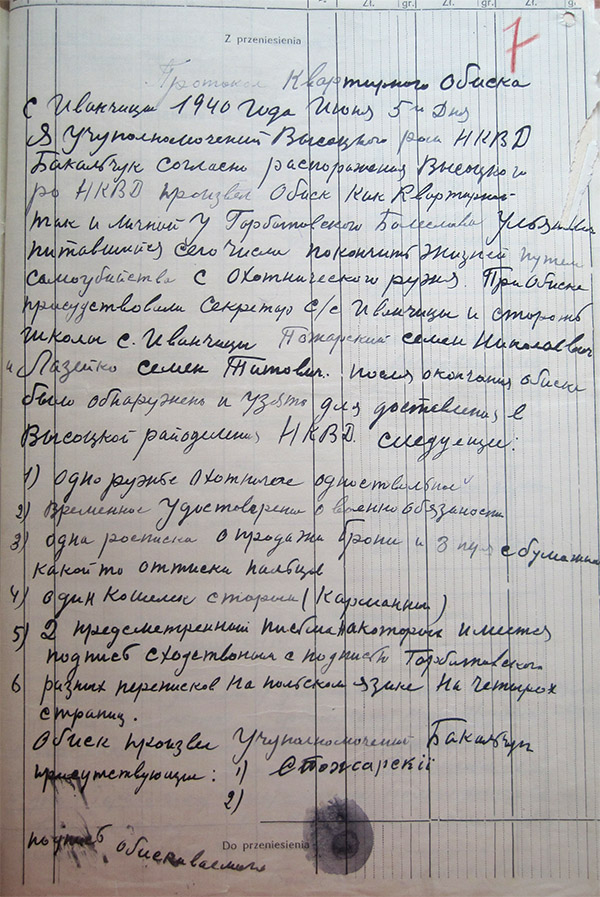 Zł. gr. Zł. gr. Zł. g.
Z przeniesienia
7
Протокол Квартирного Обиска
с Иванчицы 1940 года Июня 5го Дня
Я Учуполномочений Высоцкого рои НКВД
Бакальчук согласно распоражения Высоцкого
ро НКВД произвел Обиск как Квартирной
так и личной у Горбатовского Болеслава
питавшийся сего числа покончить жизней путем
самоубийства с Охотнического ружя. При обиске
присудствовали секретар с/с Иванчицы и сторож
школы с. Иванчицы Пожарский семен Николаевич
и Лазейко семен Титович. после окончания обиска
было обнаружено и узято для доставления в
Высоцкой райоделения НКВД следующие:
1) одно ружье охотниче одноствольной
2) Временное Удостоверение о военно обязаности
3) одна росписка о продажи брони и 3 с бумажки
какой то оттиски пальцев
4) один Кошелек старый (Карманный)
5) 2 предсметренний письма на которых имеется
подпись сходственая с подписью Горбатовского
6 разных переписков на польском язике на четирох
страниц.
Обиск произвел Учуполномочений Бакальчук
присутствующие: 1) С Пожарскіі
2)
Do przeniesienia
подпись обискиваемого